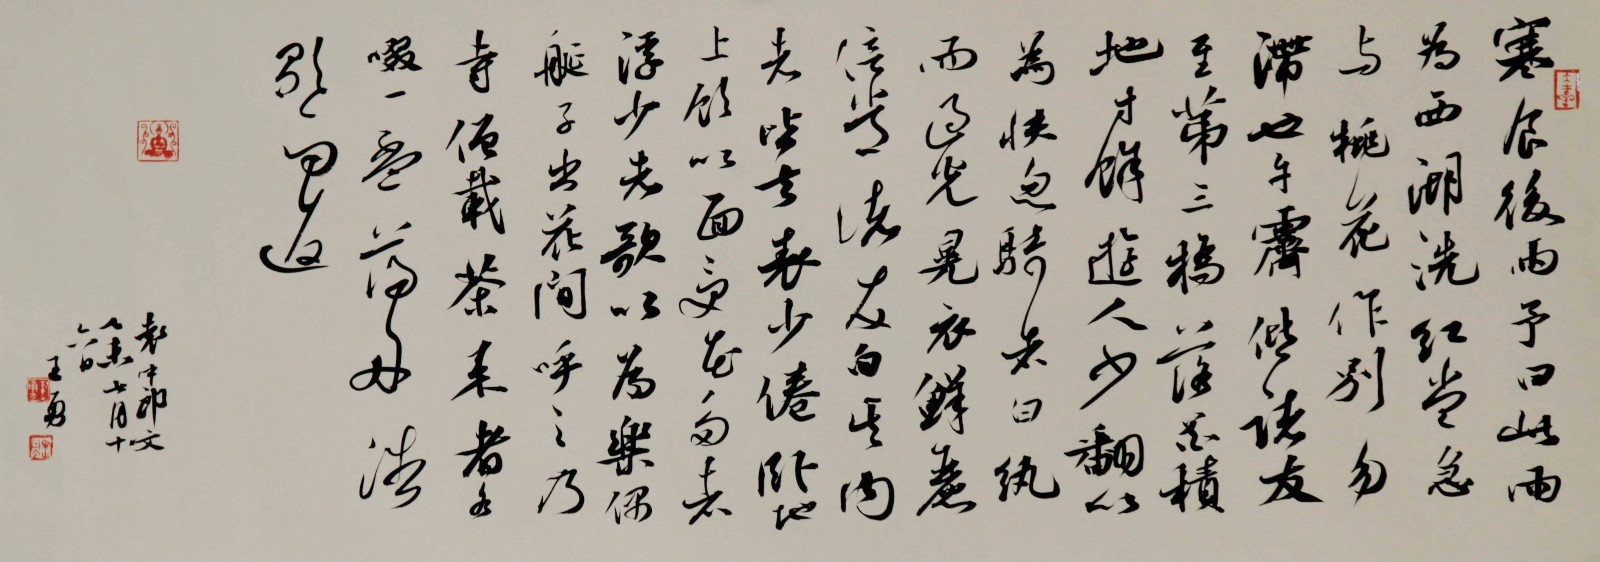 寒食後雨予曰此雨
為西湖洗紅當急
与桃花作别勿
滯也午霽偕諸友
至第三橋落花積
地寸餘遊人少翻以
為快忽騎者白纨
而過光晃衣鮮麗
倍常諸友白其内
者皆去表少倦卧地
上飲以面受花多者
浮少者歌以為樂偶
艇子出花間呼之乃
寺僧載茶来者各
啜一盃蕩舟浩
歌而返
袁中郎文
七月十
六日
王勇